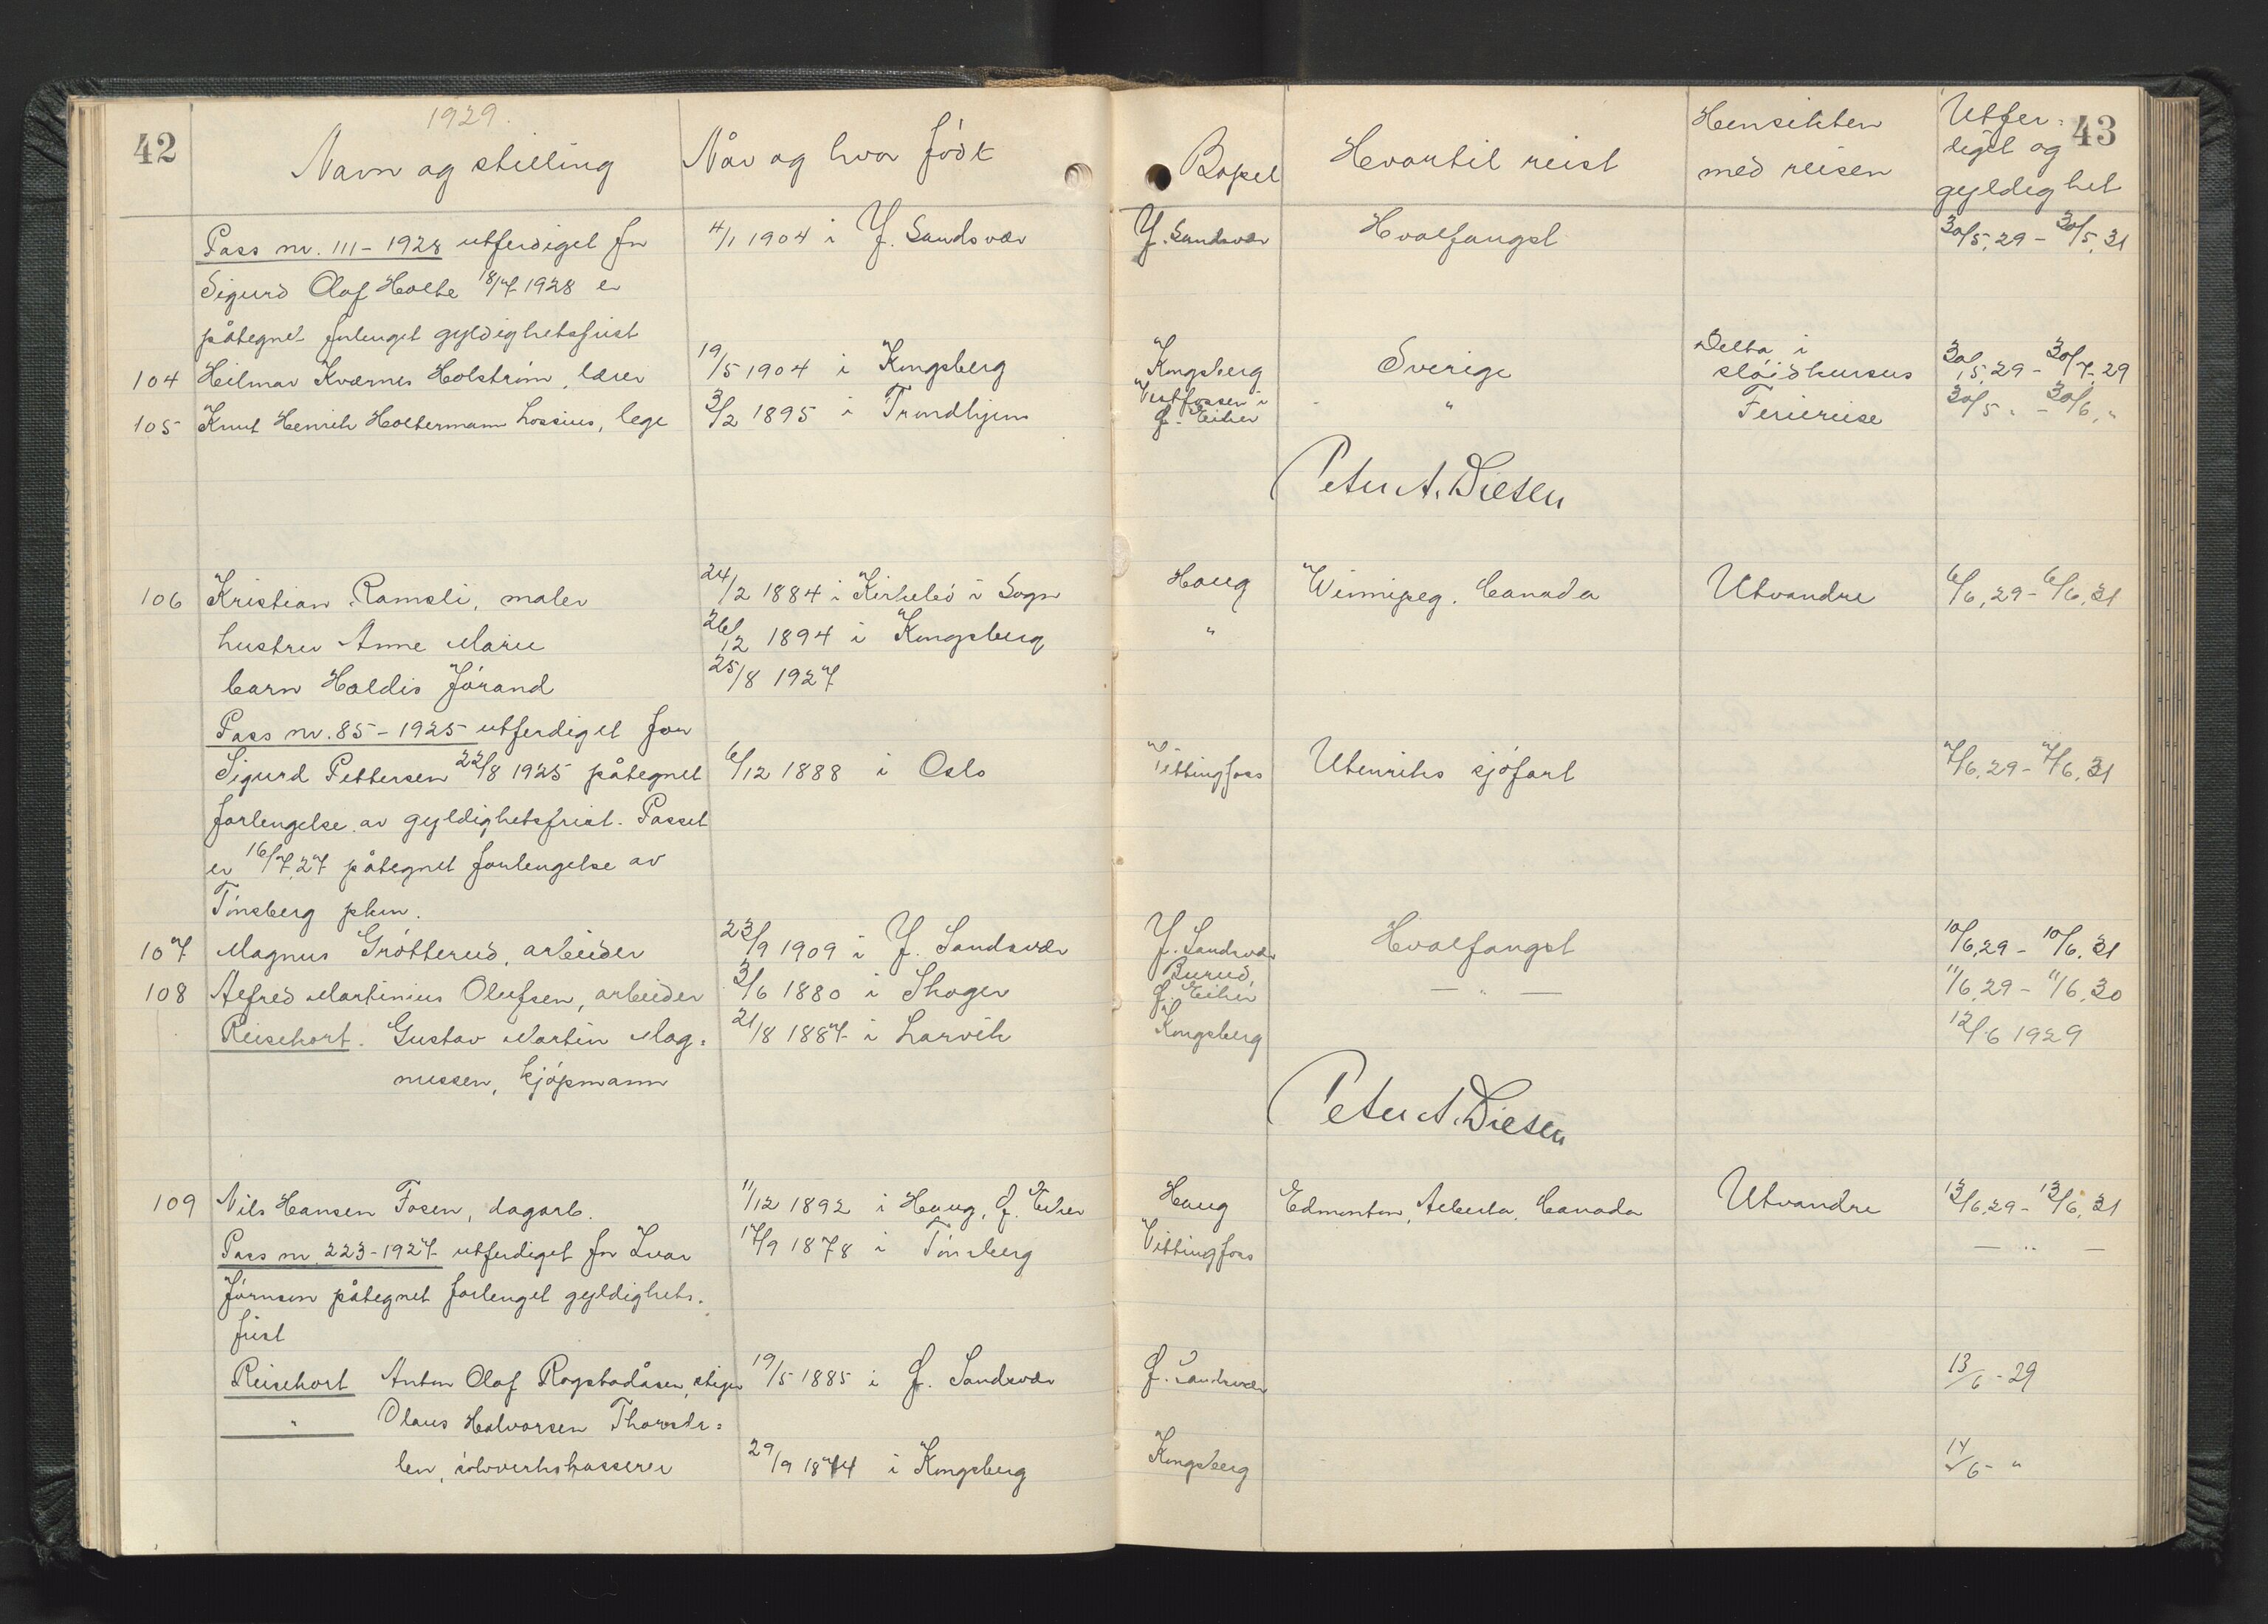 42
1929.
Navn og stilling
Når og hvor født
Bopel
Hvortil reist
Hensikten med reisen
Utfer- diget og gyldighet
43
Pass nr. 111 - 1928 utferdiget for 4/1 1904 i Y. Sandsvær Y. Sandsvær Hvalfangst 30/5.29 - 30/5.31
Sigurd Olaf Holte 18/7 1928 er
påtegnet forlenget gyldighetsfrist
104 Hilmar Kværnes Holstrøm, lærer 19/5 1904 i Kongsberg Kongsberg Sverige Delta i sløidkursus 30/5.29 - 30/7.29
105 Knut Henrik Holtermann Lossius, lege 3/2 1895 i Trondhjem Vestfossen i Ø. Eiker " Feriereise 30/5 " - 30/6. "
Peter A. Diesen
106 Kristian Ramsli, maler 24/2 1884 i Kirkebø i Sogn Haug Winnipeg. Canada Utvandre 6/6.29 - 6/6.31
hustru Anne Marie 26/12 1894 i Kongsberg "
barn Haldis Jórand 25/8 1927
Pass nr. 85 - 1925 utferdiget for
Sigurd Pettersen 22/8 1925 påtegnet 6/12 1888 i Oslo Vittingfoss Utenriks sjøfart 7/6.29 - 7/6.31
forlengelse av gyldighetsfrist. Passet
er 16/7.27 påtegnet forlengelse av
Tønsberg pkm.
107 Magnus Grøtterud, arbeider 23/9 1909 i Y. Sandsvær Y. Sandsvær Hvalfangst 10/6.29 - 10/6.31
108 Alfred Martinius Olufsen, arbeider 3/6 1880 i Skoger Burud, Ø. Eiker — " — 11/6.29 - 11/6.30
Reisekort. Gustav Martin Mag- 21/8 1887 i Larvik Kongsberg 12/6 1929
nussen, kjøpmann
Peter A. Diesen
109 Nils Hansen Fosen, dagarb. 11/12 1892 i Haug, Ø. Eiker Haug Edmonton, Alberta, Canada Utvandre 13/6.29 - 13/6.31
Pass nr. 223 - 1927 utferdiget for Ivar 17/9 1878 i Tønsberg Vittingfoss — " —
Jørnsen påtegnet forlenget gyldighets-
frist
Reisekort Anton Olaf Rogstadåsen, stiger 19/5 1885 i Ø. Sandsvær Ø. Sandsvær 13/6 - 29
" Olaus Halvorsen Thorsda-
len, sølvverkskasserer 29/9 1874 i Kongsberg Kongsberg 14/6 - "